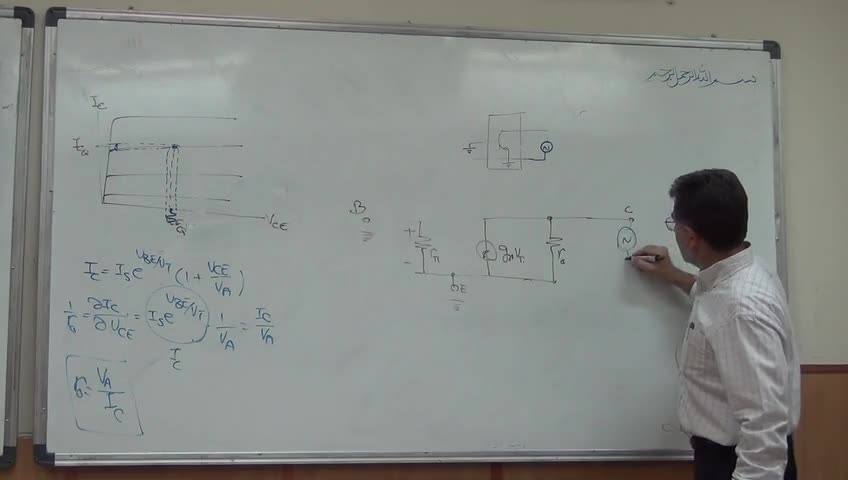 بسم الله الرحمن الرحیم
I_C
I_CQ
V_CE
I_C = I_S e^{V_BE/V_T} (1 + V_CE/V_A)
1/r_o = ∂I_C/∂V_CE = I_S e^{V_BE/V_T} 1/V_A = I_C/V_A
I_C
r_o = V_A/I_C
B
C
+
r_π
-
g_m V_π
r_o
E